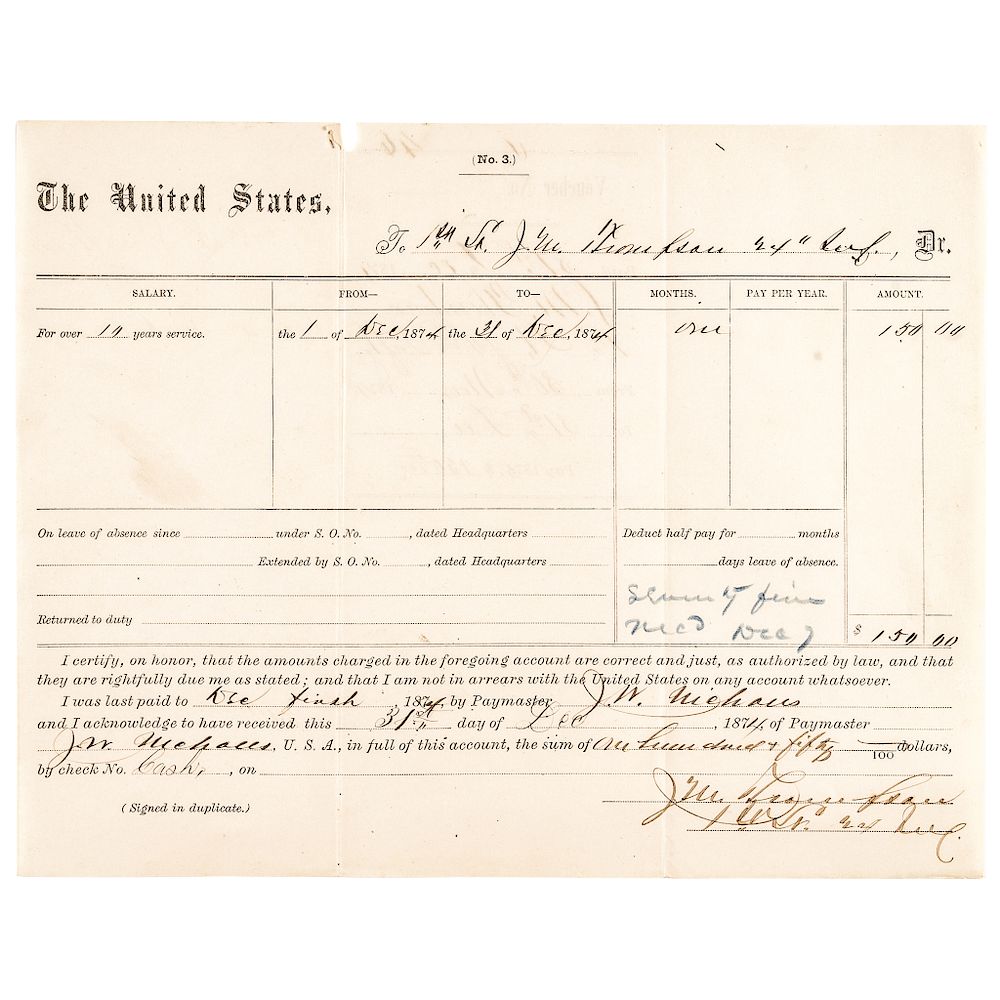 (No. 3.)
The United States,
To 1st Lt. J. M. Thompson 24" Inf., Dr.
SALARY. FROM— TO— MONTHS. PAY PER YEAR. AMOUNT.
For over 10 years service. the 1 of Dec, 1874, the 31 of Dec, 1874. one 150 00
On leave of absence since under S. O. No. , dated Headquarters Deduct half pay for months
Extended by S. O. No. , dated Headquarters days leave of absence.
Seventy five
Returned to duty rec'd Dec 7 $ 150 00
I certify, on honor, that the amounts charged in the foregoing account are correct and just, as authorized by law, and that
they are rightfully due me as stated; and that I am not in arrears with the United States on any account whatsoever.
I was last paid to Dec , 1874, by Paymaster J. W. Nichols
and I acknowledge to have received this 31st day of Dec , 1874, of Paymaster
J W. Nichols, U. S. A., in full of this account, the sum of One hundred & fifty /100 dollars,
by check No. Cash, , on
J M Thompson
(Signed in duplicate.)
1st Lt. 24 Inf.